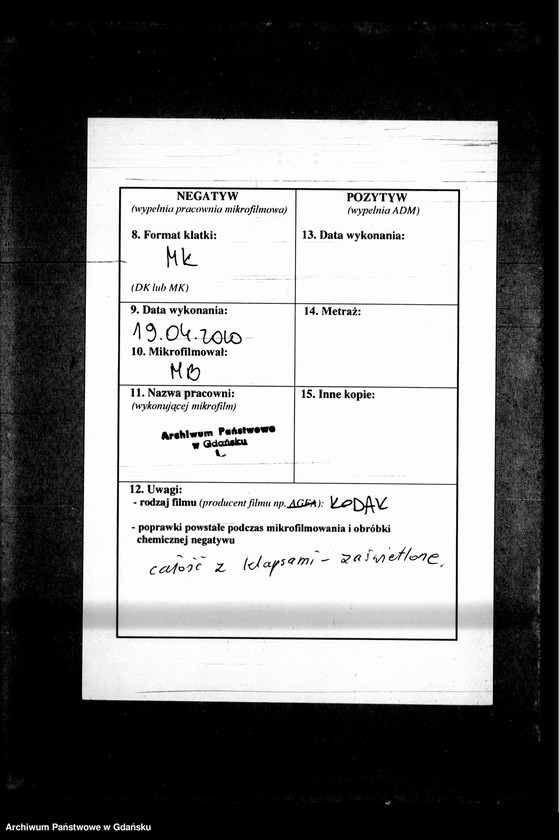 NEGATYW
(wypełnia pracownia mikrofilmowa)
8. Format klatki:
MK
(DK lub MK)
9. Data wykonania:
19.04.2010
10. Mikrofilmował:
MB
11. Nazwa pracowni:
(wykonującej mikrofilm)
Archiwum Państwowe
w Gdańsku
POZYTYW
(wypełnia ADM)
13. Data wykonania:
14. Metraż:
15. Inne kopie:
12. Uwagi:
- rodzaj filmu (producent filmu np. AGFA): KODAK
- poprawki powstałe podczas mikrofilmowania i obróbki
chemicznej negatywu
całość z klapsami - zaświetlone.
Archiwum Państwowe w Gdańsku